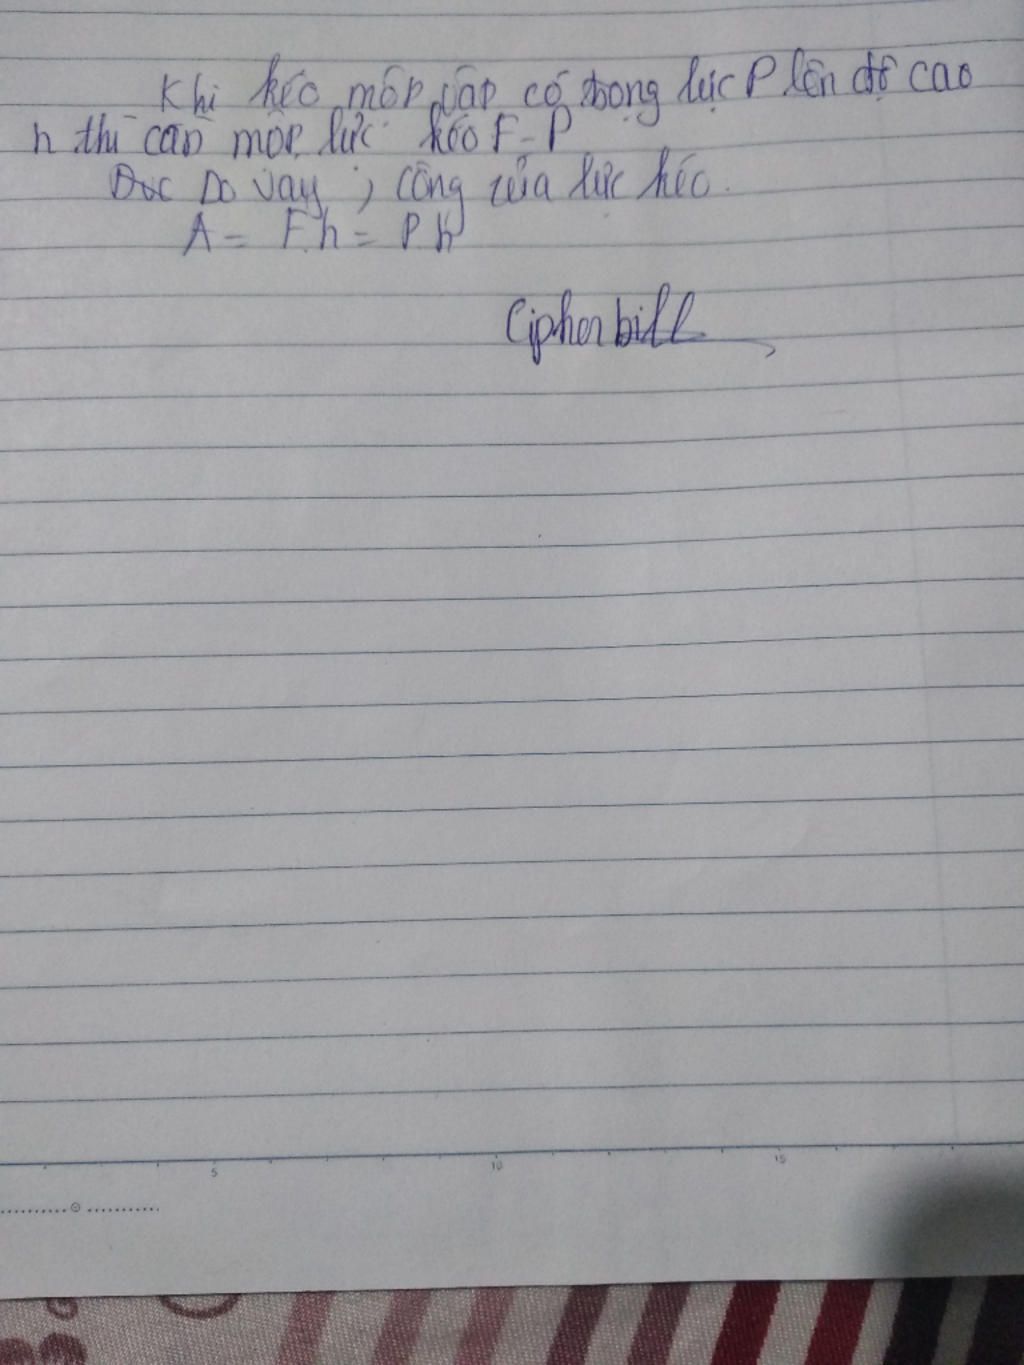 Khi kéo một vật có trọng lực P lên độ cao
h thì cần một lực kéo F = P
Do vậy, công của lực kéo.
A = F.h = P.h
Cipher bill
5 10 15